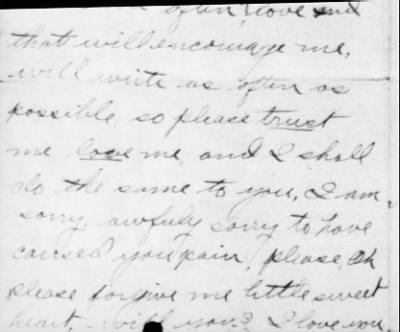 often, love and
that will encourage me,
will write as often as
possible, so please trust
me love me, and I shall
do the same to you, I am,
sorry, awfuly sorry to have
caused you pain, please, Oh
please forgive me little sweet
heart, - will you? I love you,